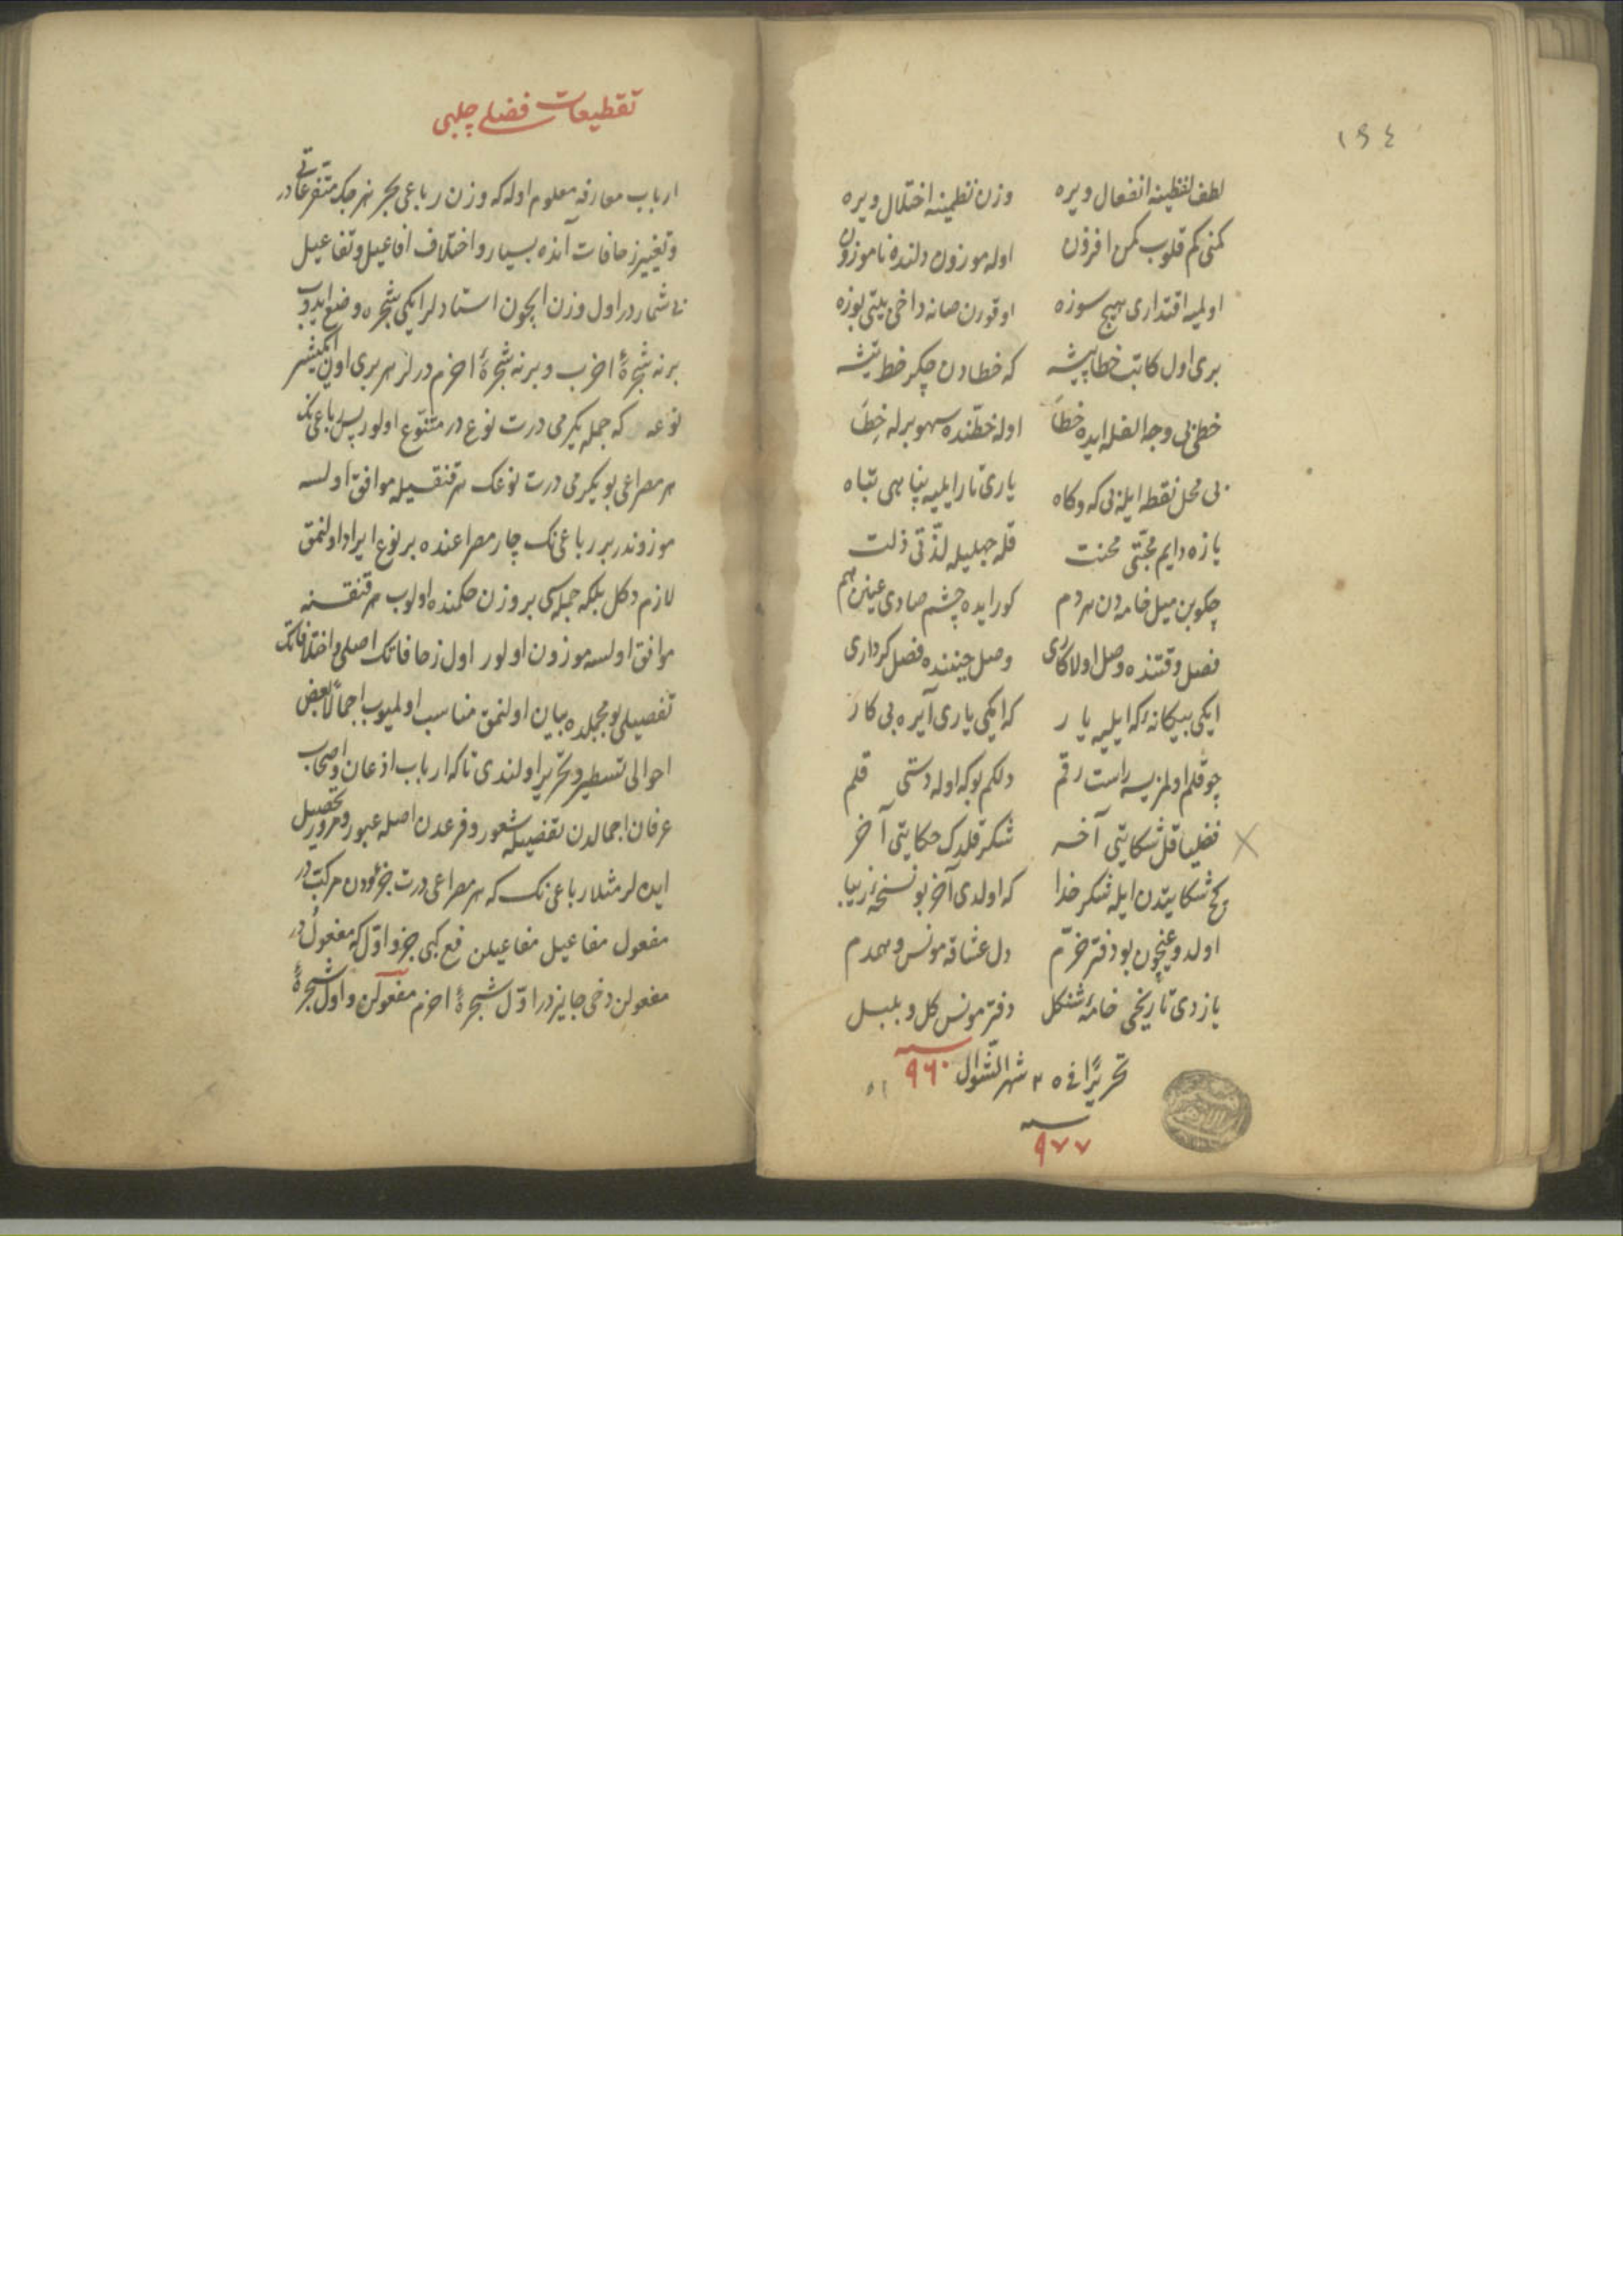 ١٩٤
لطف لفظینه انفعال ویره وزن نظمینه اختلال ویره
کمنی کم قلوب کمن افزون اوله موزون دلنده ناموزون
اولمیه اقتداری هیچ سوزه اوقورن صانه داخی بیتی بوزه
بری اول کاتب خطا پیشه که خطادن چکر خط تیشه
خطی بی وجه الفله ایده خطا اوله خطنده سهو برله خطا
بی محل نقطه ایله بی که وکاه یاری نار ایلیه پناهی تباه
یازه دایم محبتی محنت قله جهلیله لذتی ذلت
چکوبن میل خامه دن هر دم کور ایده چشم صادی عینن هم
فصل وقتنده وصل اولا کاری وصل حیننده فصل کرداری
ایکی بیکانه که ایلیه یار که ایکی یاری آیره بی کار
چو قلم اولمزیسه راست رقم دلکم بو که اوله دستی قلم
فضلیا قل شکایتی آخر شکر قلدک حکایتی آخر
کج شکایتدن ایله شکر خدا که اولدی آخر بو نسخه زیبا
اولدو غیچون بو دفتر خرم دل عشاقه مونس و همدم
یازدی تاریخی خامه شنکل دفتر مونس کل و بلبل
٩٦٠
تحریرا فی ٢٥ شهر الشوال
٩٧٧
تقطیعات فضلی چلبی
ارباب معارفه معلوم اوله که وزن رباعی بحر هزجک متفرعاتی در
وتغییر زحافات آنده بسیار و اختلاف افاعیل و تفاعیل
بی شمار در اول وزن ایچون استادلر ایکی شجره وضع ایدوب
برنه شجرۀ اخرب و برنه شجرۀ اخرم درلر هر بری اون ایکیشر
نوعه که جمله یکرمی درت نوع در متنوع اولور پس رباعینک
هر مصراعی بو یکرمی درت نوعک هر قنقسیله موافق اولسه
موزوندر بر رباعینک چار مصراعنده بر نوع ایراد اولنمق
لازم دکل بلکه جمله سی بر وزن حکمنده اولوب هر قنقسنه
موافق اولسه موزون اولور اول زحافاتک اصلی و اختلافاتک
تفصیلی بو مجلده بیان اولنمق مناسب اولمیوب اجمالا بعض
احوالی تسطیر و تحریر اولندی تا که ارباب اذعان و اصحاب
عرفان اجمالدن تفصیله شعور و فرعدن اصله عبور و مرور تحصیل
ایده لر مثلا رباعینک که هر مصراعی درت جزؤدن مرکبدر
مفعول مفاعیل مفاعیلن فع کبی جزو اول که مفعول در
مفعولن دخی جایز در اول شجرۀ اخرم مفعولن و اول شجرۀ